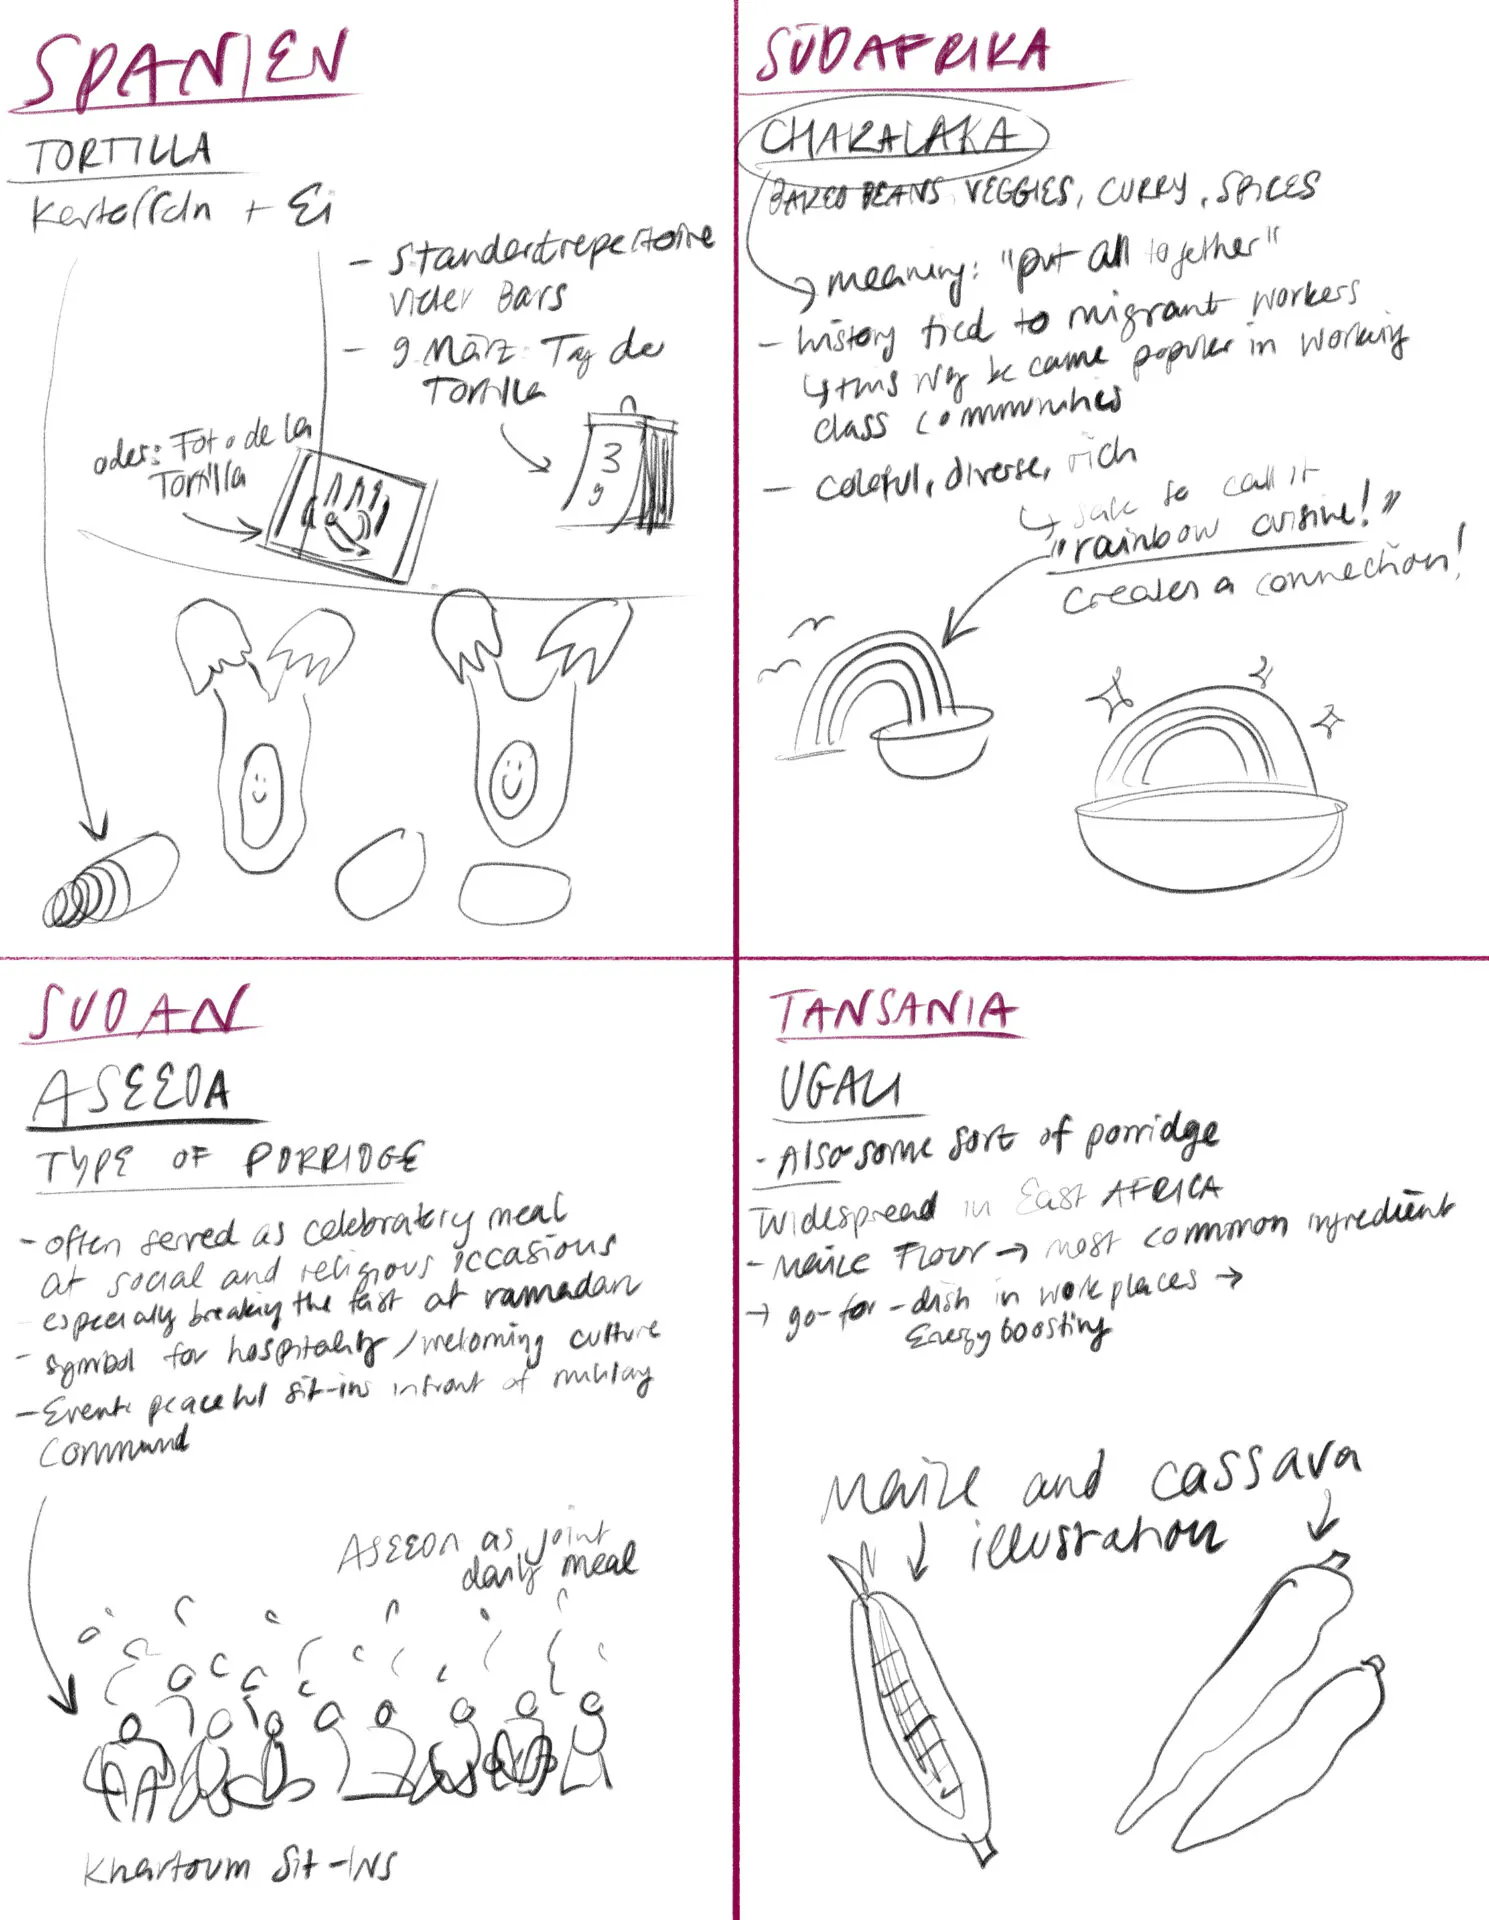 SPANIEN
TORTILLA
Kartoffeln + Ei
- Standardrepertoire
vieler Bars
- 9. März: Tag der
Tortilla
oder: Foto de la
Tortilla
3
9
SÜDAFRIKA
CHAKALAKA
BAKED BEANS, VEGGIES, CURRY, SPICES
meaning: "put all together"
- history tied to migrant workers
↳ this way became popular in working
class communities
- colorful, diverse, rich
↳ safe to call it
"rainbow cuisine!"
creates a connection!
SUDAN
ASEEDA
TYPE OF PORRIDGE
- often served as celebratory meal
at social and religious occasions
especially breaking the fast at ramadan
- symbol for hospitality/welcoming culture
- Event: peaceful sit-ins infront of military
command
ASEEDA as joint
daily meal
Khartoum Sit-INS
TANSANIA
UGALI
- Also some sort of porridge
Widespread in East AFRICA
- Maize Flour → most common ingredient
→ go-for-dish in workplaces →
Energy boosting
Maize and cassava
illustration